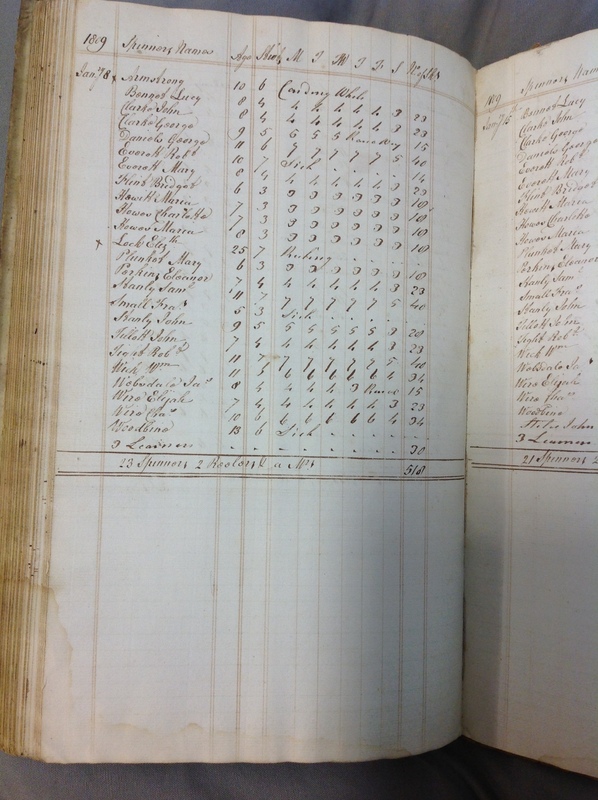 1809 Spinners Names Age Stick M T W T F S No Sks
Jany 8 x Armstrong 10 6 Carding Whole
Bennet Lucy 8 4 4 4 4 4 4 3 23
Clarke John 8 4 4 4 4 4 4 3 23
Clarke George 9 5 5 5 5 Run away 15
Daniels George 11 6 7 7 7 7 7 5 40
Everett Robt 10 7 Sick
Everett Mary 8 4 4 4 4 4 4 3 23
Flint Bridget 6 3 3 3 3 3 3 3 18
Howitt Maria 7 3 3 3 3 3 3 3 18
Howes Charlotte 7 3 3 3 3 3 3 3 18
Howes Maria 8 3 3 3 3 3 3 3 18
x Lock Elizth 25 7 Reeling
Plunket Mary 6 3 3 3 3 3 3 3 18
Perkins Eleanor 7 4 4 4 4 4 4 3 23
Stanly Saml 11 7 7 7 7 7 7 5 40
Small Fras 5 3 Sick
Stanly John 9 5 5 5 5 5 5 3 28
Tillott John 7 4 4 4 4 4 4 3 23
Tight Robt 11 7 7 7 7 7 7 5 40
Wick Wm 11 6 6 6 6 6 6 4 34
Websdale Jas 8 4 4 4 4 3 15
Wire Elijah 7 4 4 4 4 4 4 3 23
Wire Chas 10 6 6 6 6 6 6 4 34
Woodbine 13 6 Sick
3 Learners 30
23 Spinners 2 Reelers & a Mrs 518
1809 Spinners Nam
Jany 15 Bennet Lucy
Clarke John
Clarke George
Daniels George
Everett Robt
Everett Mary
Flint Bridget
Howitt Maria
Howes Charlotte
Howes Maria
Plunket Mary
Perkins Eleanor
Stanly Saml
Small Fras
Stanly John
Tillott John
Tight Robt
Wick Wm
Websdale Jas
Wire Elijah
Wire Chas
Woodbine
John
3 Learner
21 Spinners 2